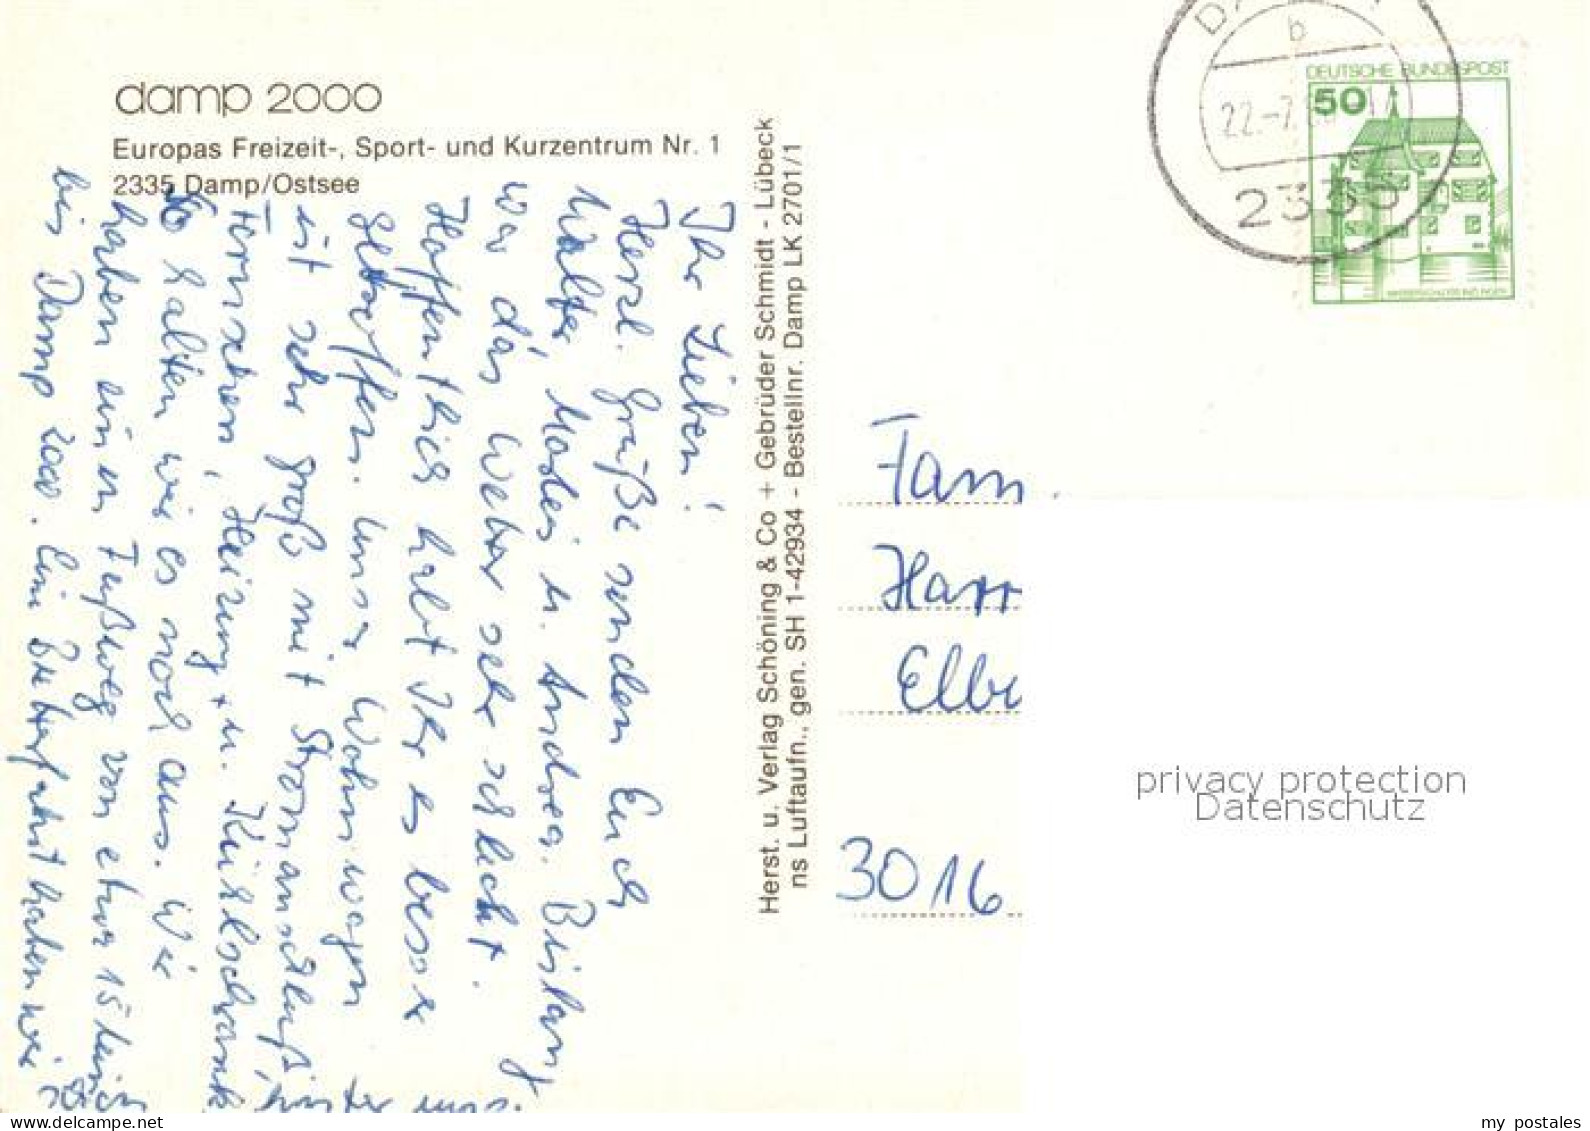 damp 2000
Europas Freizeit-, Sport- und Kurzentrum Nr. 1
2335 Damp/Ostsee
Ihr Lieben!
Herzl. Grüße senden Euch
Walter, u. Andrea. Bislang
war das Wetter sehr schlecht.
Hoffentlich habt Ihr es besser
getroffen. Unser Wohnwagen
ist sehr groß mit Stromanschluß,
Fernsehen, Heizung u. Kühlschrank
So halten wir es noch aus. Wir
haben einen Fußweg von etwa 15
bis Damp 2000. haben wir
Herst. u. Verlag Schöning & Co + Gebrüder Schmidt - Lübeck
ns Luftaufn., gen. SH 1-42934 - Bestellnr. Damp LK 2701/1
b
22.-7.
2335
DEUTSCHE BUNDESPOST
50
Fam.
Harr
Elb
3016
privacy protection
Datenschutz
www.delcampe.net
my postales